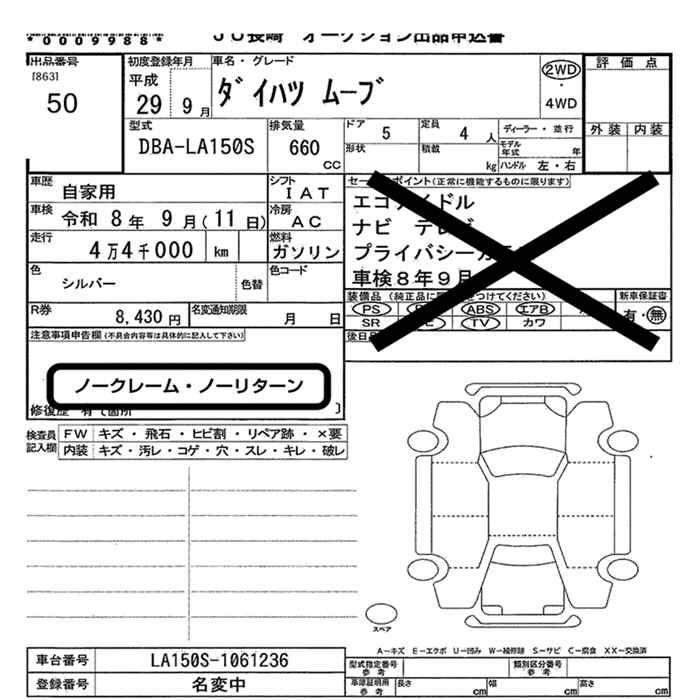 *0009988*
JU長崎 オークション出品申込書
出品番号
[863]
50
初度登録年月
平成
29 9月
車名・グレード
ダイハツ ムーブ
2WD
・
4WD
評価点
外装 内装
型式
DBA-LA150S
排気量
660
CC
ドア
5
定員
4人
ディーラー・並行
形状
積載
kg
モデル年式
年
ハンドル 左・右
車歴
自家用
シフト
IAT
車検
令和 8年 9月(11日)
冷房
AC
走行
4万4千000 km
燃料
ガソリン
色
シルバー
色替
色コード
R券
8,430円
名変通知期限
月 日
セールスポイント(正常に機能するものに限ります)
エコアイドル
ナビ テレビ
プライバシーガラス
車検8年9月
装備品
(純正品に
つけてください)
新車保証書
PS
ABS
エアB
有・無
SR
TV
カワ
後日品
注意事項申告欄(不具合内容等は具体的に記入して下さい)
ノークレーム・ノーリターン
修復歴 有て箇所
検査員記入欄
FW キズ・飛石・ヒビ割・リペア跡・×要
内装 キズ・汚レ・コゲ・穴・スレ・キレ・破レ
スペア
A-キズ E-エクボ U-凹み W-補修跡 S-サビ C-腐食 XX-交換済
車台番号
LA150S-1061236
登録番号
名変中
型式指定番号
参考
類別区分番号
参考
車庫証明用
参考
長さ
cm
幅
cm
高さ
cm